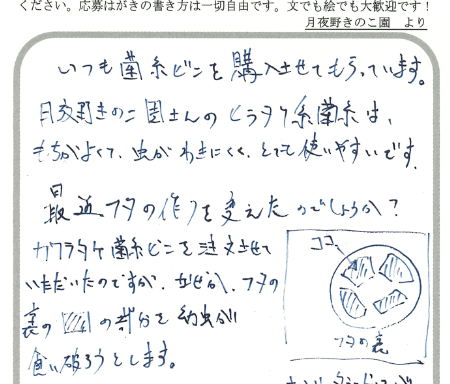 ください。応募はがきの書き方は一切自由です。文でも絵でも大歓迎です！
月夜野きのこ園　より
いつも菌糸ビンを購入させてもらっています。
月夜野きのこ園さんのヒラタケ系菌糸は、
もちがよくて、虫がわきにくく、とても使いやすいです。
最近フタの作りを変えたのでしょうか？
カワラタケ菌糸ビンを注文させて
いただいたのですが、なぜか、フタの
裏の　の部分を幼虫が
食い破ろうとします。
ココ
フタの裏